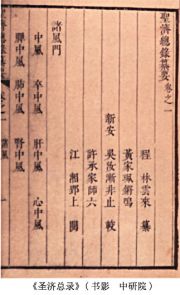 聖濟總錄纂要卷之一
程 林雲來 纂
黃家珮鏘鳴
新安 吳汝漸非止 較
許承家師六
江 湘郢上 閱
諸風門
中風 卒中風 肝中風 心中風
脾中風 肺中風 腎中風
《圣济总录》（书影 中研院）